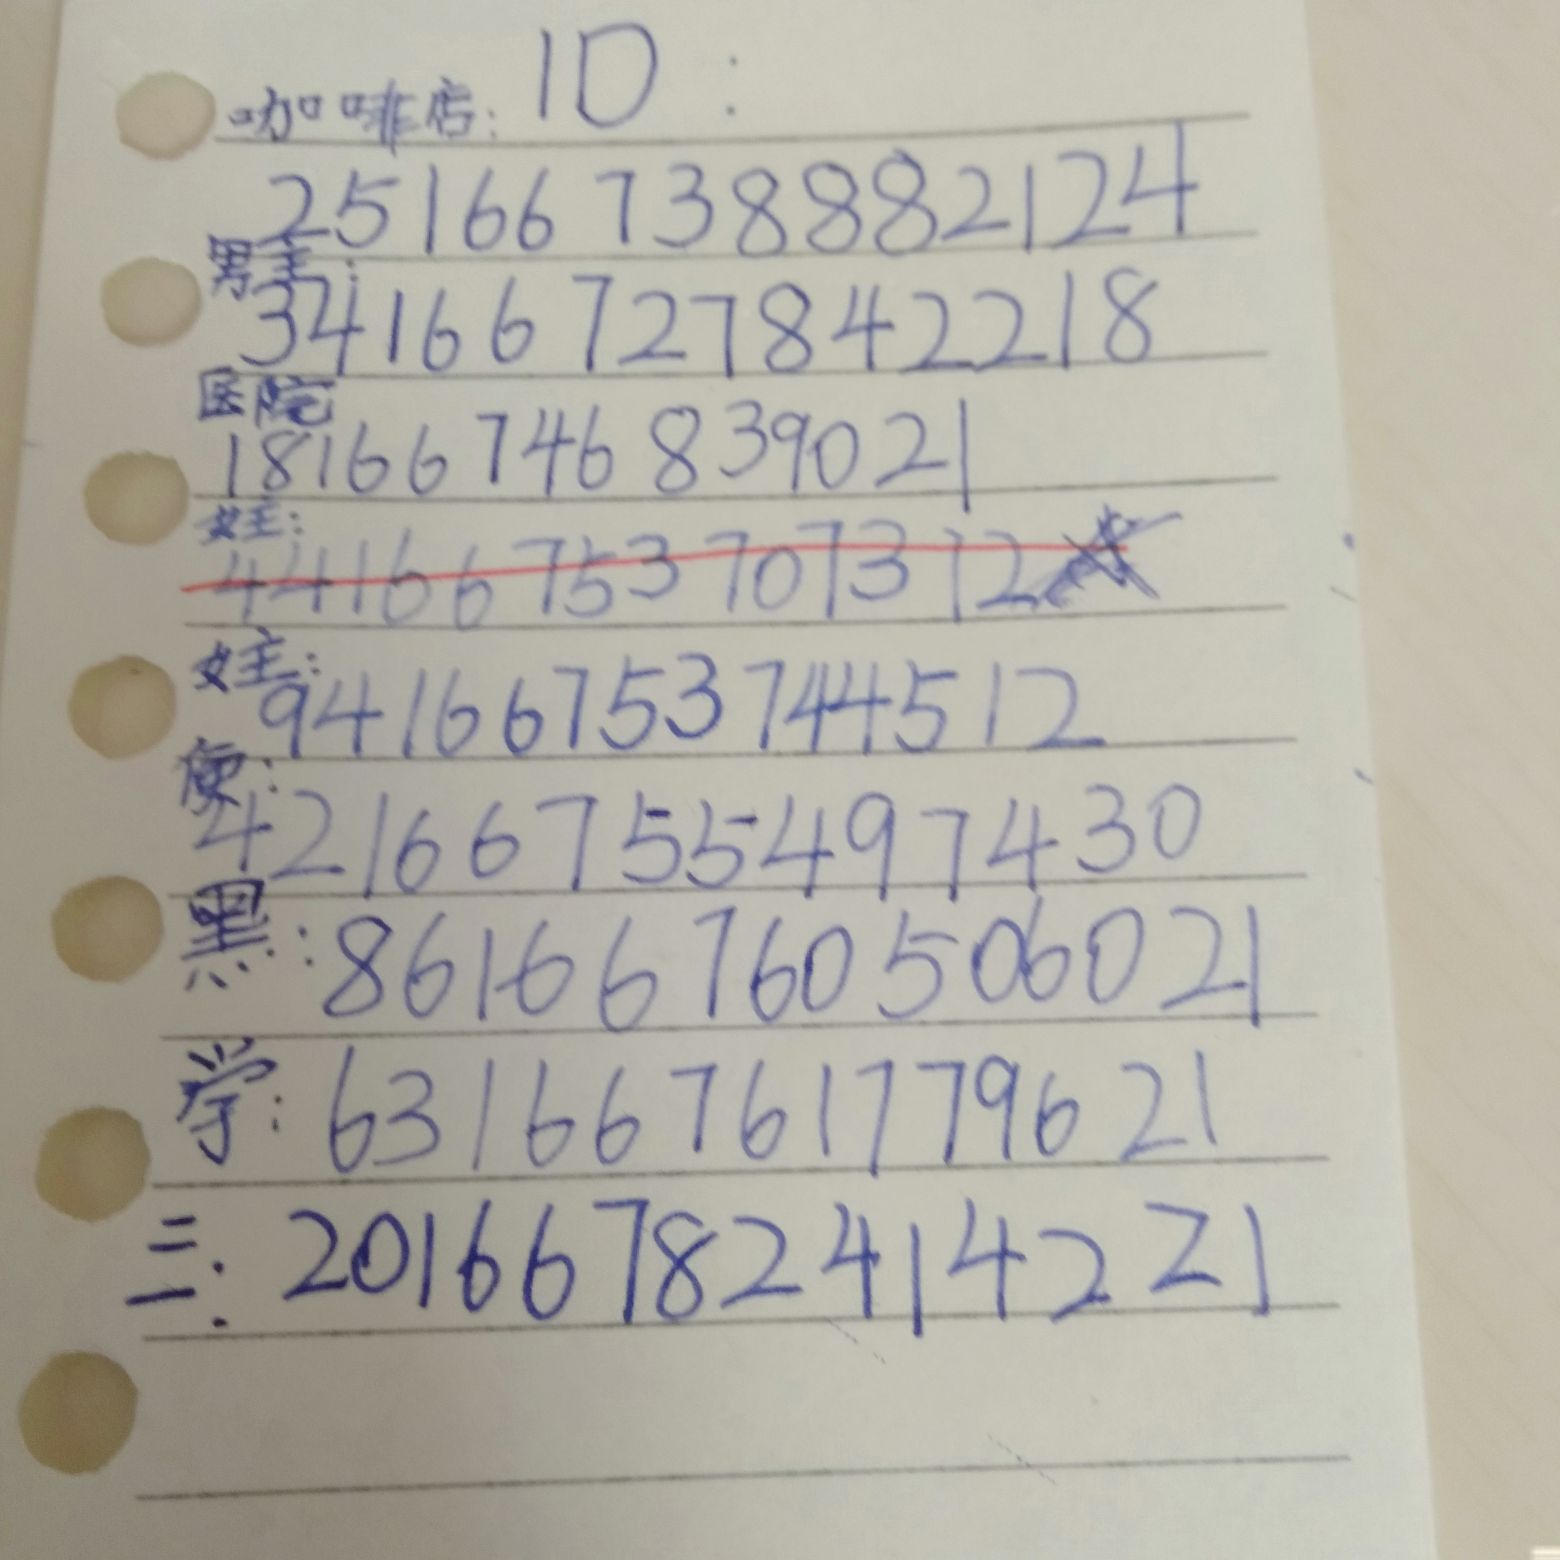 ID:
咖啡店:
251667388882124
男主:
34166727842218
医院
18166746839021
女主:
441667537073 12
女主:
941667537445 12
便:
42166755497430
黑: 86166760506021
学: 631667617796 21
三: 201667824142 21